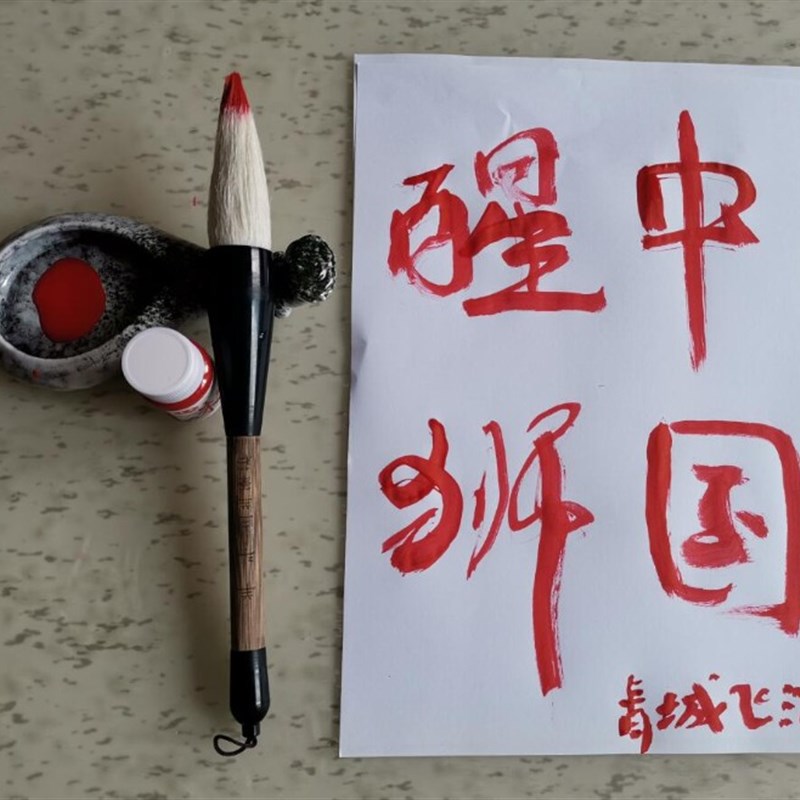 中国
醒狮
青城飞